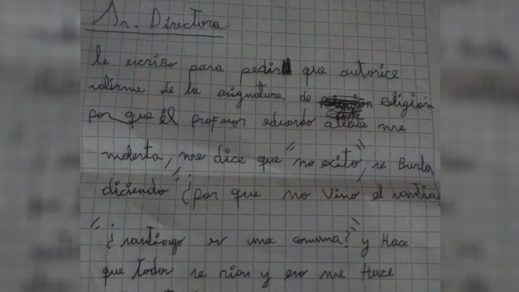 Sr. Directora
le escribo para pedir que autorice
salirme de la asignatura de religión
por que él profesor eduardo me
molesta, me dice que "no exito", se Burla
diciendo "¿por que no vino el santia
"¿santiago es una comuna?" y Hace
que todos se rian y eso me Hace